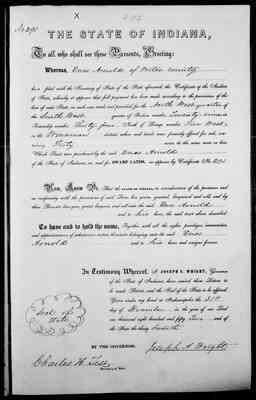 X
No 291
THE STATE OF INDIANA,
To all who shall see these Presents, Greeting:
Whereas, Enos Arnold of Porter County
has filed with the Secretary of the State of the State aforesaid, the Certificate of the Auditor
of State, whereby it appears that full payment has been made according to the provisions of the
law of said State in such case made and provided for the North West quarter of
the South West quarter of Section number Twenty
Township number Thirty four North of Range number West,
in the Winamac district above and
Forty acres to the same more or less:
Which Tract was purchased by the said Enos Arnold
of the State of Indiana, as and for SWAMP LANDS, as appears by Certificate No. 291
Now, Know Ye, That the in consideration of the premises and
in conformity with the provisions of said Law, has given, granted, bargained and sold, and by
these Presents does give, grant, bargain, and sell unto the said Enos Arnold
and to his heirs, the said tract above described:
To have and to hold the same, Together with all the rights, privileges, immunities,
and appurtenances of whatsoever nature thereunto belonging unto the said Enos
Arnold and to his heirs and assigns forever.
In Testimony Whereof, I, JOSEPH A. WRIGHT, Governor
of the State of Indiana, have caused these Letters to
be made Patent, and the Seal of the State to be affixed.
Given under my hand at Indianapolis the 31st
day of December in the year of our Lord
one thousand eight hundred and fifty two and of
the State the
Seal of
State
BY THE GOVERNOR,
Joseph A. Wright
Charles H. Test
Secretary of State.